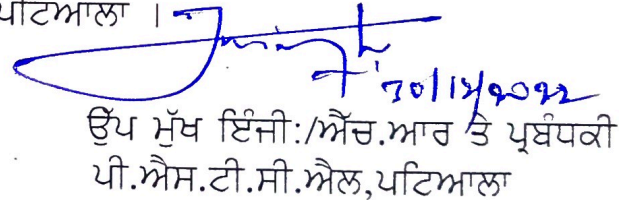 ਪਟਿਆਲਾ ।
30/12/2022
ਉੱਪ ਮੁੱਖ ਇੰਜੀ:/ਐੱਚ.ਆਰ ਤੇ ਪ੍ਰਬੰਧਕੀ
ਪੀ.ਐਸ.ਟੀ.ਸੀ.ਐਲ,ਪਟਿਆਲਾ